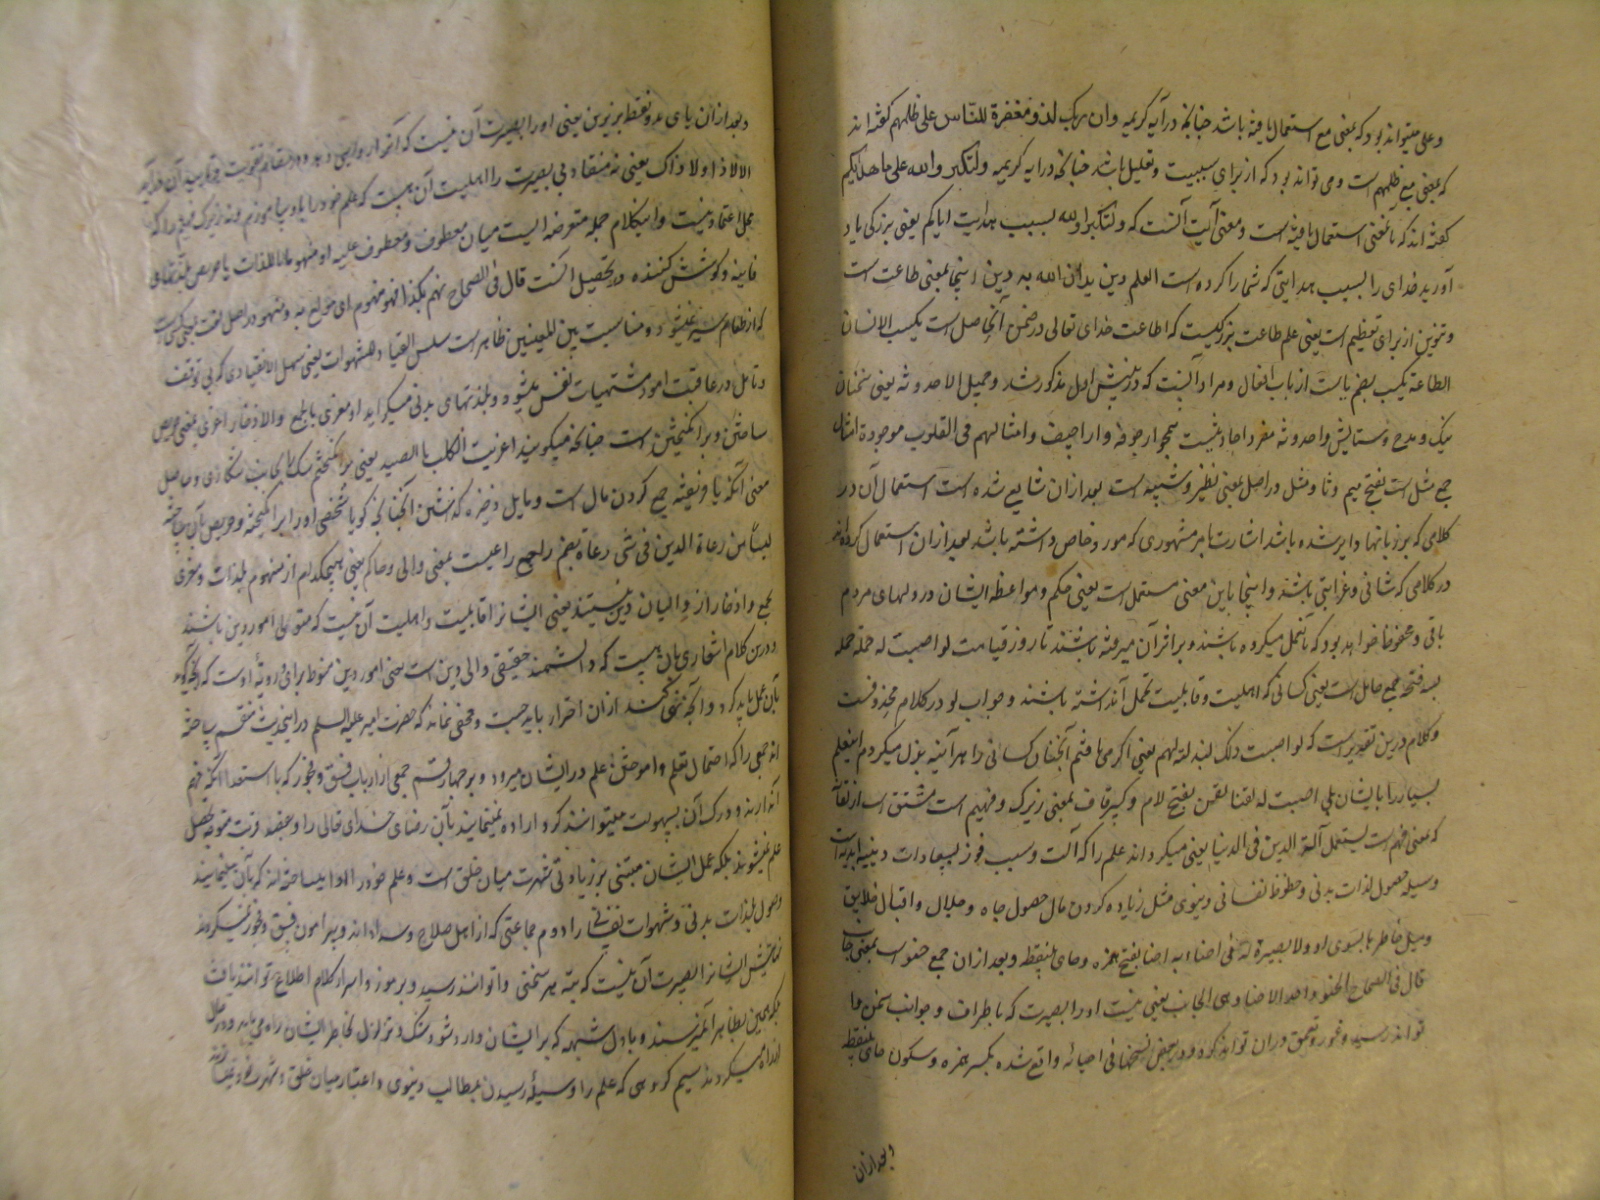 و علی میتواند بود که بمعنی مع استعمال یافته باشد چنانچه در آیه کریمه وان ربک لذو مغفرة للناس علی ظلمهم گفته اند
که بمعنی مع ظلمهم است و می تواند بود که از برای سببیت و تعلیل باشد چنانچه در ایه کریمه ولتکبروا الله علی ما هدیکم
گفته اند که باینمعنی استعمال یافته است و معنی آیت آنست که ولتکبروا لله بسبب هدایت ایاکم یعنی بزرکی یاد
آورید خدای را بسبب هدایتی که شما را کرده است العلم دین یدان الله به دین اینجا بمعنی طاعت است
و تنوین از برای تعظیم است یعنی علم طاعت بزرکیست که اطاعت خدای تعالی در ضمن آن حاصل است یکسب الانسان
الطاعة یکسب بضم یا است از باب افعال و مراد آنست که در پیش اول مذکور شد و جمیل الاحدوثه یعنی سخنان
نیک و مدح و ستایش و احدوثه مفرد احادیث است همچو ارجوفه و اراجیف و امثالهم فی القلوب موجودة امثال
جمع مثل است بفتح میم و ثا و مثل در اصل بمعنی نظیر و شبیه است بعد ازان شایع شده است استعمال آن در
کلامی که بر زبانها دایر شده باشد اشارت بامر مشهوری که مورد خاص داشته باشد بعد ازان استعمال کرده اند
در کلامی که شانی و غرابتی باشد و اینجا باین معنی مستعمل است یعنی حکم و مواعظ ایشان در دلهای مردم
باقی و محفوظ خواهد بود که بآن عمل میکرده باشند و بر اثر آن میرفته باشند تا روز قیامت لو اصبت له حملة حمله
بسه فتحه جمع حامل است یعنی کسانی که اهلیت و قابلیت تحمل آن داشته باشند و جواب لو در کلام محذوفست
و کلام درین تقدیر است که لو اصبت ذلک لبذلته لهم یعنی اکر می یافتم آنچنان کسانی را هر آینه بذل میکردم این علم
بسیار را بایشان بلی اصبت له لقنا لقن بفتح لام و کسر قاف بمعنی زیرک و فهیم است مشتق است از لقانة
که بمعنی فهم است یستعمل آلة الدین فی الدنیا یعنی میکرداند علم را که آلت و سبب فوز بسعادات دینیه ابدیه است
وسیله حصول لذات بدنی و حظوظ نفسانی دنیوی مثل زیاده کردن مال حصول جاه و جلال و اقبال خلایق
و میل خاطرها بسوی او و لا بصیرة له فی احنائه احنا بفتح همزه و حای بی نقطه و بعد ازان جمع حنو است بمعنی جانب
قال فی الصحاح الحنو واحد الاحنا وهی الجانب یعنی نیست او را بصیرت که باطراف و جوانب سخن ما
تواند رسید و غور و تعمق دران تواند کرد و در بعض نسخها فی احیائه واقع شده بکسر همزه و سکون حای بی نقطه
و بعد ازان
و بعد ازان یای دو نقطه بر زیرین یعنی او را بصیرت آن نیست که
الا لا ذا ولا ذاک یعنی نه منقاد بی بصیرت را اهلیت آن هست که علم خود را باو بیاموزم و نه زیرک
محل اعتماد نیست و این کلام جمله معترضه ایست میان معطوف و معطوف علیه او منهوما باللذات یا حریص بلذتهای
فانیه و کوشش کننده در تحصیل آنست قال فی الصحاح نهم بکذا فهو منهوم ای مولع به و منهوم در اصل لغت
که از طعام سیر نمیشود و مناسبت بین المعنیین ظاهر است سلس القیاد للشهوات یعنی سهل الانقیادی که بی توقف
و تامل در عاقبت امور مشتهیات نفس میشود و بلذتهای بدنی میکراید او مغری بالجمع والادخار اغری بمعنی حریص
ساختن و برانکیختن است چنانچه میکویند اغریت الکلب بالصید یعنی برانکیختم سک را بجانب شکاری و حاصل
معنی آنکه یا فریفته جمع کردن مال است و مایل ذخیره کذاشتن آنچنانکه کویا شخصی او را برانکیخته و حریص بآن ساخته
لیسا من رعاة الدین فی شیء رعاة بضم را جمع راعیست بمعنی والی و حاکم یعنی هیچکدام از منهوم بلذات و مغری
بجمع و ادخار از والیان دین نیستند یعنی ایشانرا قابلیت و اهلیت آن نیست که متولی امور دین باشند
و درین کلام اشعاری بآن هست که دانشمند حقیقی والی دین است یعنی امور دین منوط برای و رویة اوست که آنچه کوید
بآن عمل باید کرد و از آنچه نهی کند ازان احتراز باید جست و مخفی نماند که حضرت امیر علیه السلم در این حدیث منقسم ساخته
اند جمعی را که احتمال تعلم و آموختن علم در ایشان میرود و بر چهار قسم جمعی از ارباب فسق و فجور که با استعداد انکه فهم
آنه دارند و درک آن بسهولت میتوانند کرد اراده نمینمایند بآن رضای خدای تعالی را
علم نمیشوند بلکه عمل ایشان مبتنی بر زیادتی شهرت میان خلق است و علم خود را
وصول بلذات بدنی و شهوات نفسانی را دوم جماعتی که از اهل صلاح و سدادند و پیرامون فسق و فجور نمیکردند
ایشانرا بصیرت آن نیست که بتة هر سخنی توانند رسید و بر رموز و اسرار کلام اطلاع توانند یافت
بلکه همین بظاهر و باول شبهه که بر ایشان وارد شود شک و تزلزل بخاطر ایشان راه می یابد
میکردند سیم کروهی که علم را وسیلۀ رسیدن بمطالب دنیوی و اعتبار میان خلق و شهرت